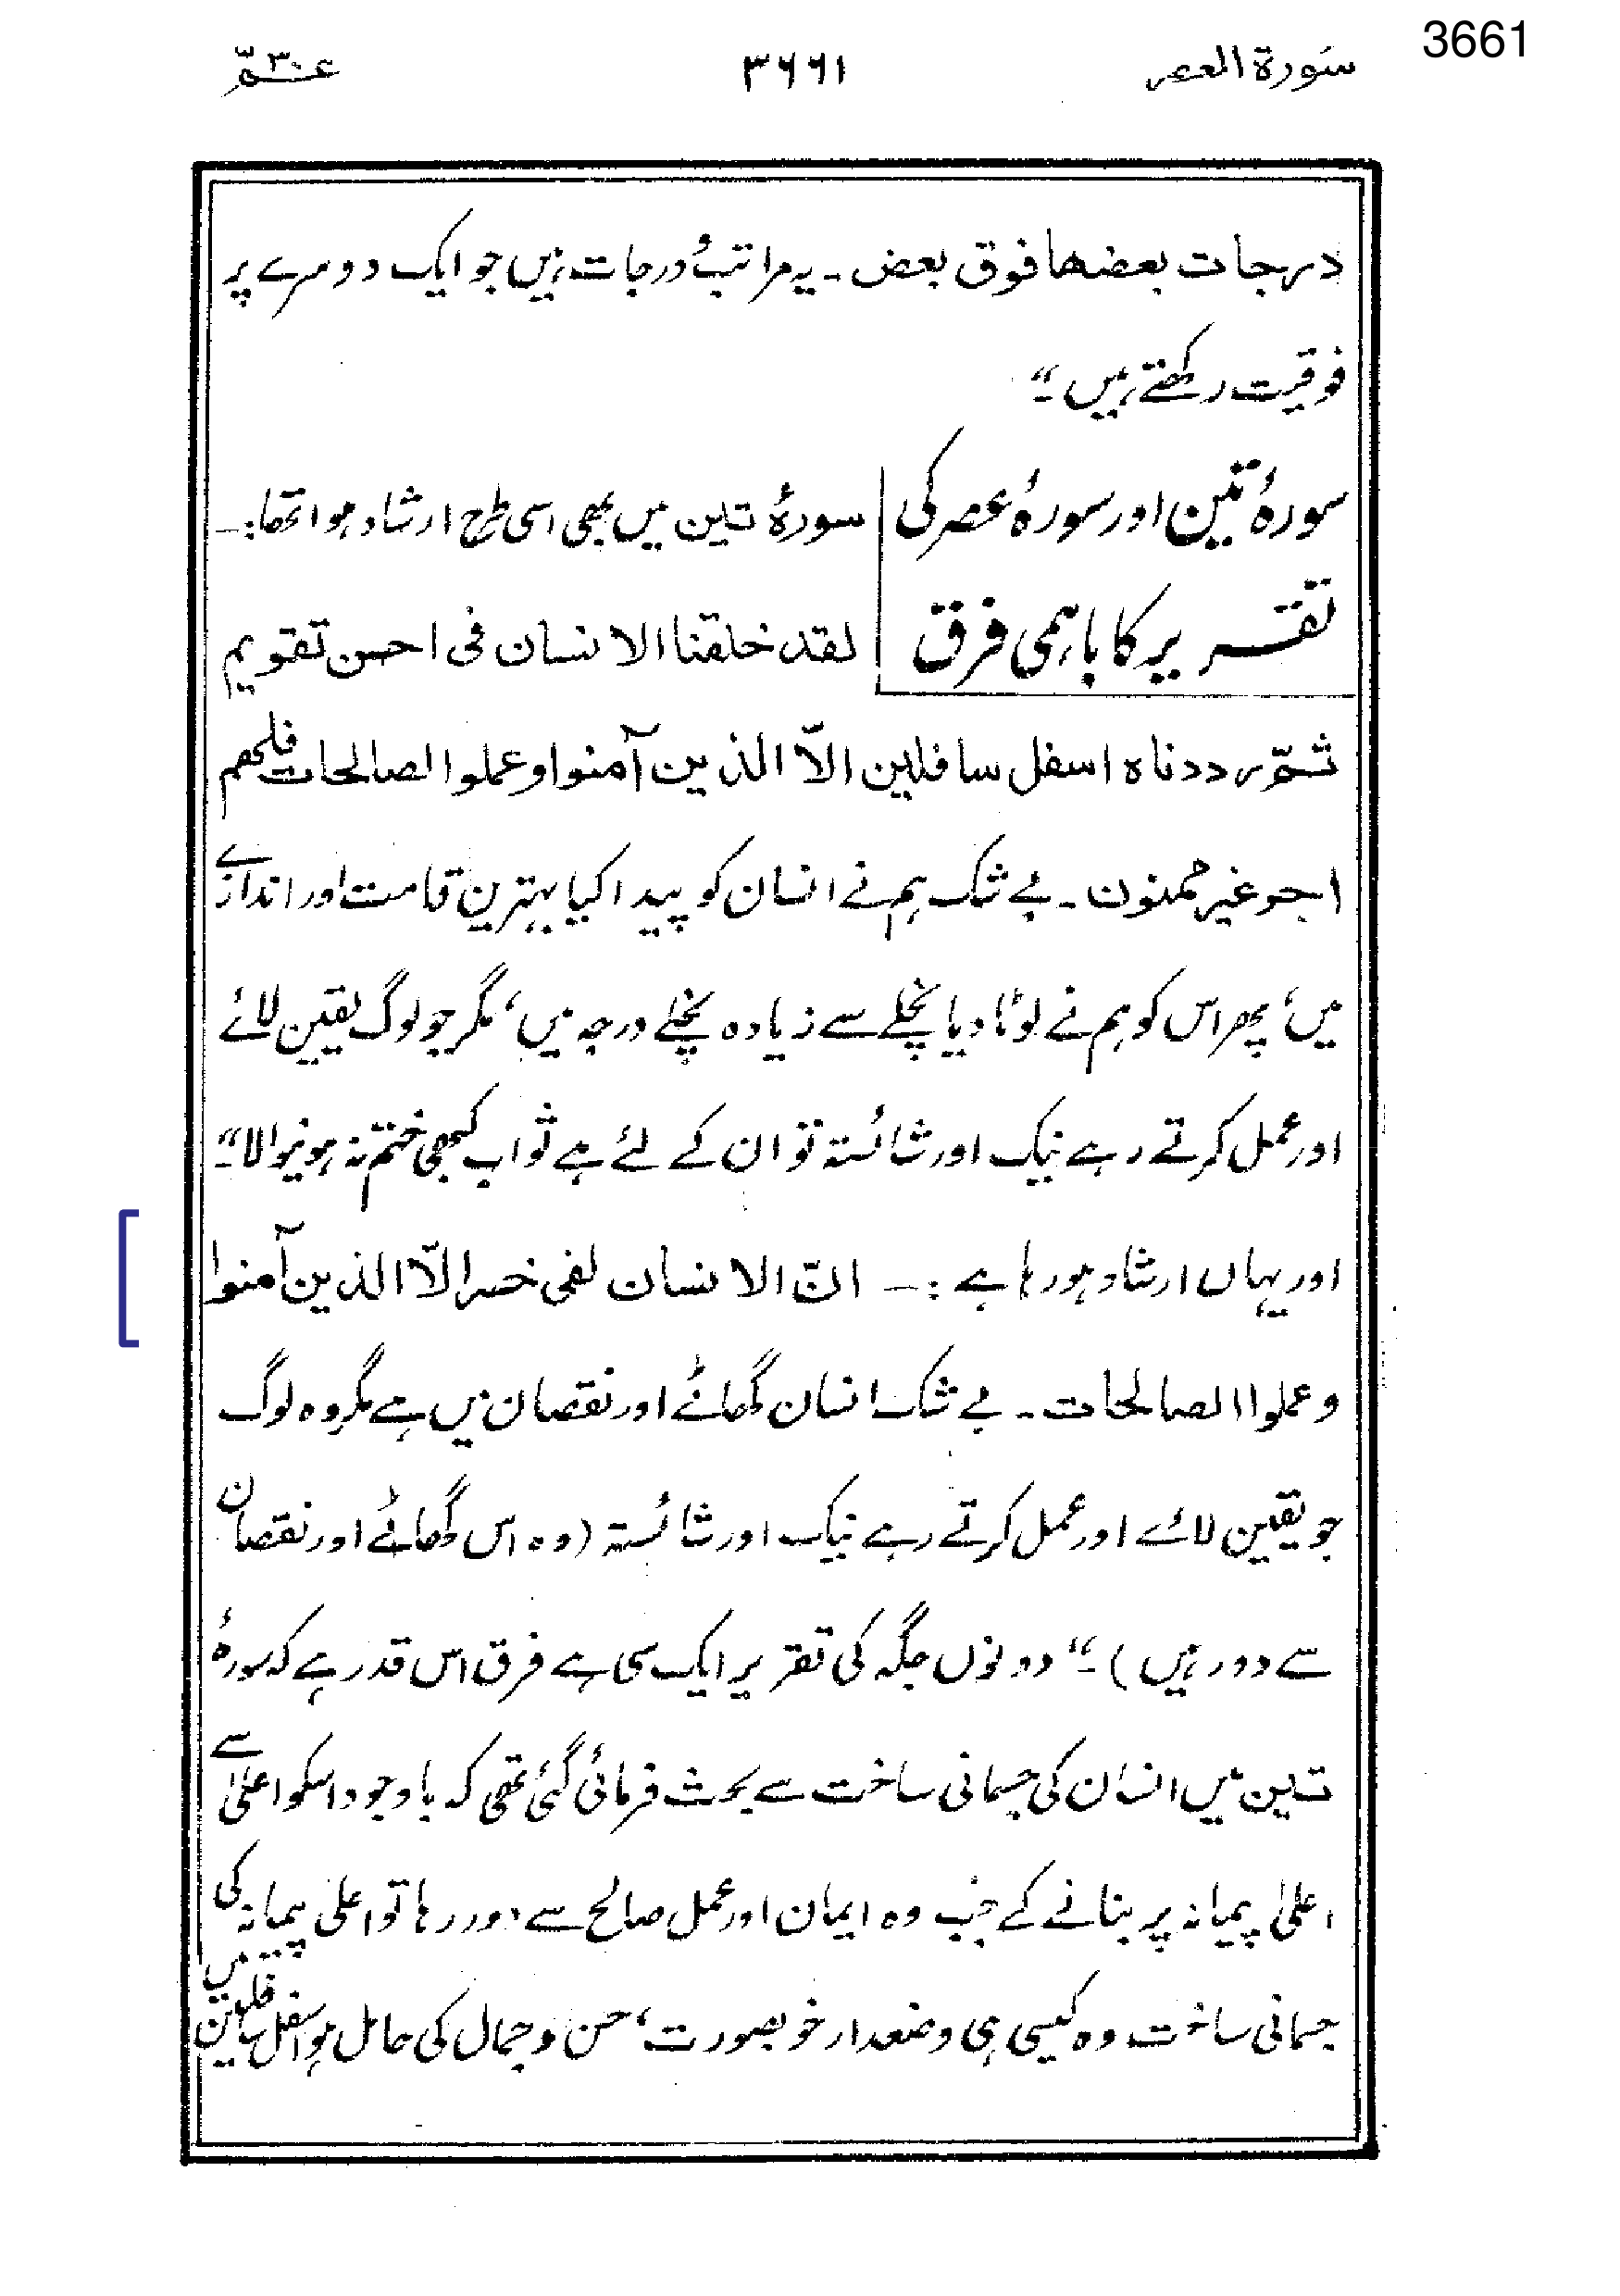 3661
سورة العصر ۳۶۶۱ عمّ ۳۰
درجات بعضها فوق بعض ۔ یہ مراتبُ درجات ہیں جو ایک دوسرے پر
فوقیت رکھتے ہیں ۔“
سورۂ تین اور سورۂ عصر کی | سورۂ تین میں بھی اسی طرح ارشاد ہوا تھا :۔
تقریر کا باہمی فرق | لقد خلقنا الانسان فی احسن تقویم
ثمّ رددناه اسفل سافلین الاّ الذین آمنوا وعملوا الصالحات فلھم
اجر غیر ممنون ۔ بے شک ہم نے انسان کو پیدا کیا بہترین قامت اور اندازے
میں، پھر اس کو ہم نے لوٹا دیا نچلے سے زیادہ نچلے درجہ میں، مگر جو لوگ یقین لائے
اور عمل کرتے رہے نیک اور شائستہ تو ان کے لئے ہے ثواب کبھی ختم نہ ہونیوالا ۔“
اور یہاں ارشاد ہو رہا ہے :۔ انّ الانسان لفی خسر الاّ الذین آمنوا
وعملوا الصالحات ۔ بے شک انسان گھاٹے اور نقصان میں ہے مگر وہ لوگ
جو یقین لائے اور عمل کرتے رہے نیک اور شائستہ (وہ اس گھاٹے اور نقصان
سے دور ہیں) ۔“ دونوں جگہ کی تقریر ایک سی ہے فرق اس قدر ہے کہ سورۂ
تین میں انسان کی جسمانی ساخت سے بحث فرمائی گئی تھی کہ باوجود اسکو اعلیٰ سے
اعلیٰ پیمانہ پر بنانے کے جب وہ ایمان اور عمل صالح سے دور رہا تو اعلی پیمانہ کی
جسمانی ساخت وہ کیسی ہی وضعدار خوبصورت، حسن و جمال کی حامل ہو اسفل سافلین میں